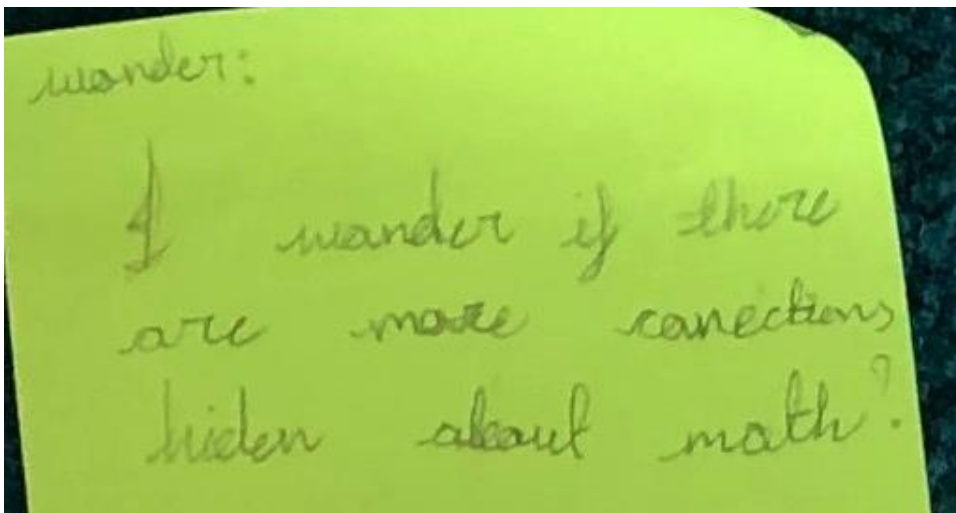 wonder:
I wander if there
are more conections
hiden about math?